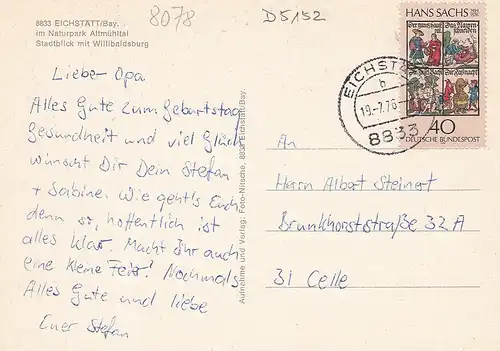 8833 EICHSTÄTT/Bay.
im Naturpark Altmühltal
Stadtblick mit Willibaldsburg
8078
D5152
Liebe Opa
Alles Gute zum Geburtstag
Gesundheit und viel Glück
wünscht Dir Dein Stefan
+ Sabine. Wie geht's Euch
denn so, hoffentlich ist
alles klar. Macht Ihr auch
eine kleine Feier! Nochmals
Alles Gute und liebe
Euer Stefan
Aufnahme und Verlag: Foto-Nitsche, 8833 Eichstätt/Bay.
HANS SACHS
40
DEUTSCHE BUNDESPOST
EICHST
b
19.-7.76
8833
An
Herrn Albert Steinert
Brunkhorststraße 32 A
31 Celle